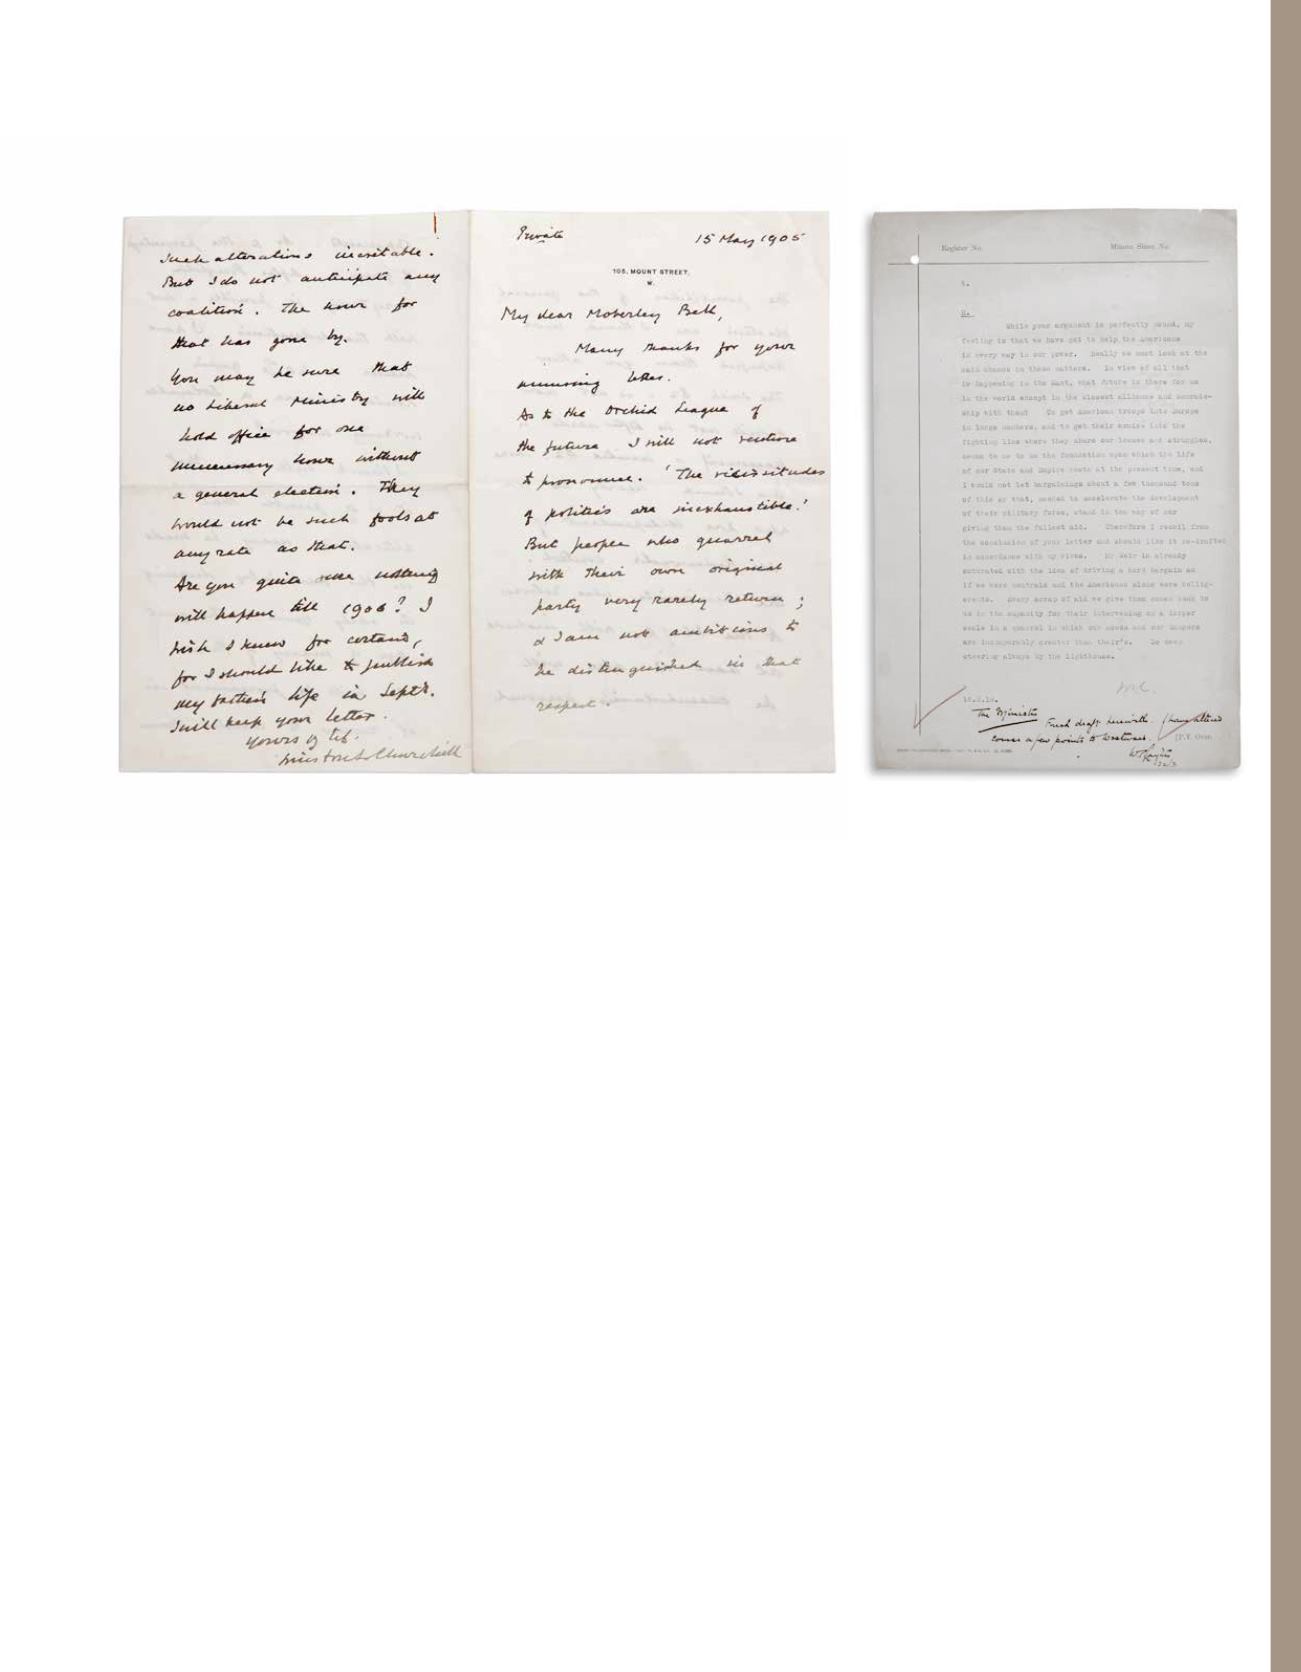 such alterations inevitable.
But I do not anticipate any
coalition. The hour for
that has gone by.
You may be sure that
no Liberal Ministry will
hold office for one
unnecessary hour without
a general election. They
would not be such fools at
any rate as that.
Are you quite sure nothing
will happen till 1906? I
wish I knew for certain,
for I should like to publish
my father's life in Sept'r.
I will keep your letter.
Yours
Winston S. Churchill
Private
15 May 1905
105, MOUNT STREET,
W.
My dear Moberley Bell,
Many thanks for your
amusing letter.
As to the Orchid League of
the future I will not venture
to pronounce. 'The vicissitudes
of politics are inexhaustible.'
But people who quarrel
with their own original
party very rarely return;
& I am not ambitious to
be distinguished in that
respect.
Register No.
Minute Sheet No.
While your argument is perfectly sound, my
feeling is that we have got to help the Americans
in every way in our power. Really we must look at the
main chance in these matters. In view of all that
is happening in the East, what future is there for us
in the world except in the closest alliance and
ship with them? To get American troops into Europe
in large numbers, and to get their armies into the
fighting line where they share our losses and struggles,
seems to me to be the foundation upon which the life
of our State and Empire rests at the present time, and
I would not let bargainings about a few thousand tons
of this or that, needed to accelerate the development
of their military force, stand in the way of our
giving them the fullest aid. Therefore I recoil from
the conclusion of your letter and should like it re-drafted
in accordance with my views. Mr Weir is already
saturated with the idea of driving a hard bargain as
if we were neutrals and the Americans alone were bellig-
erents. Every scrap of aid we give them comes back to
us in the capacity for their intervening on a larger
scale in a quarrel in which our needs and our dangers
are incomparably greater than their's. So keep
steering always by the lighthouse.
The Minister
Fresh draft herewith. I have altered
a few points